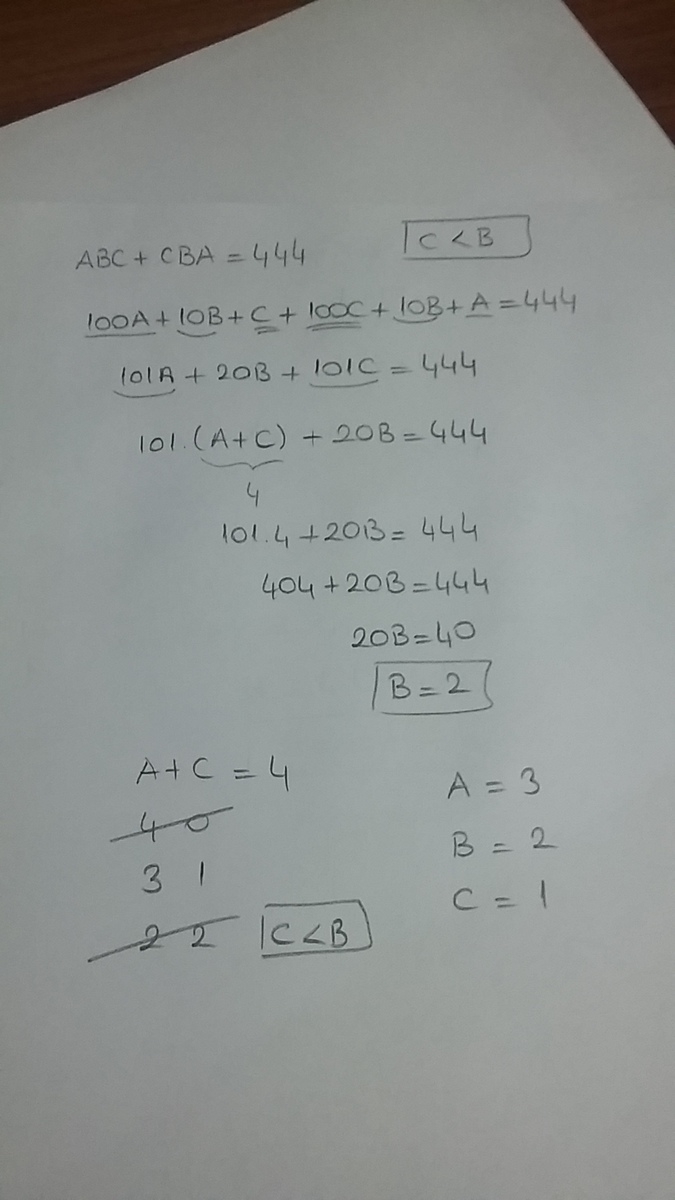 ABC + CBA = 444
C < B
100A + 10B + C + 100C + 10B + A = 444
101A + 20B + 101C = 444
101.(A+C) + 20B = 444
4
101.4 + 20B = 444
404 + 20B = 444
20B = 40
B = 2
A + C = 4
4 0
3 1
2 2
C < B
A = 3
B = 2
C = 1